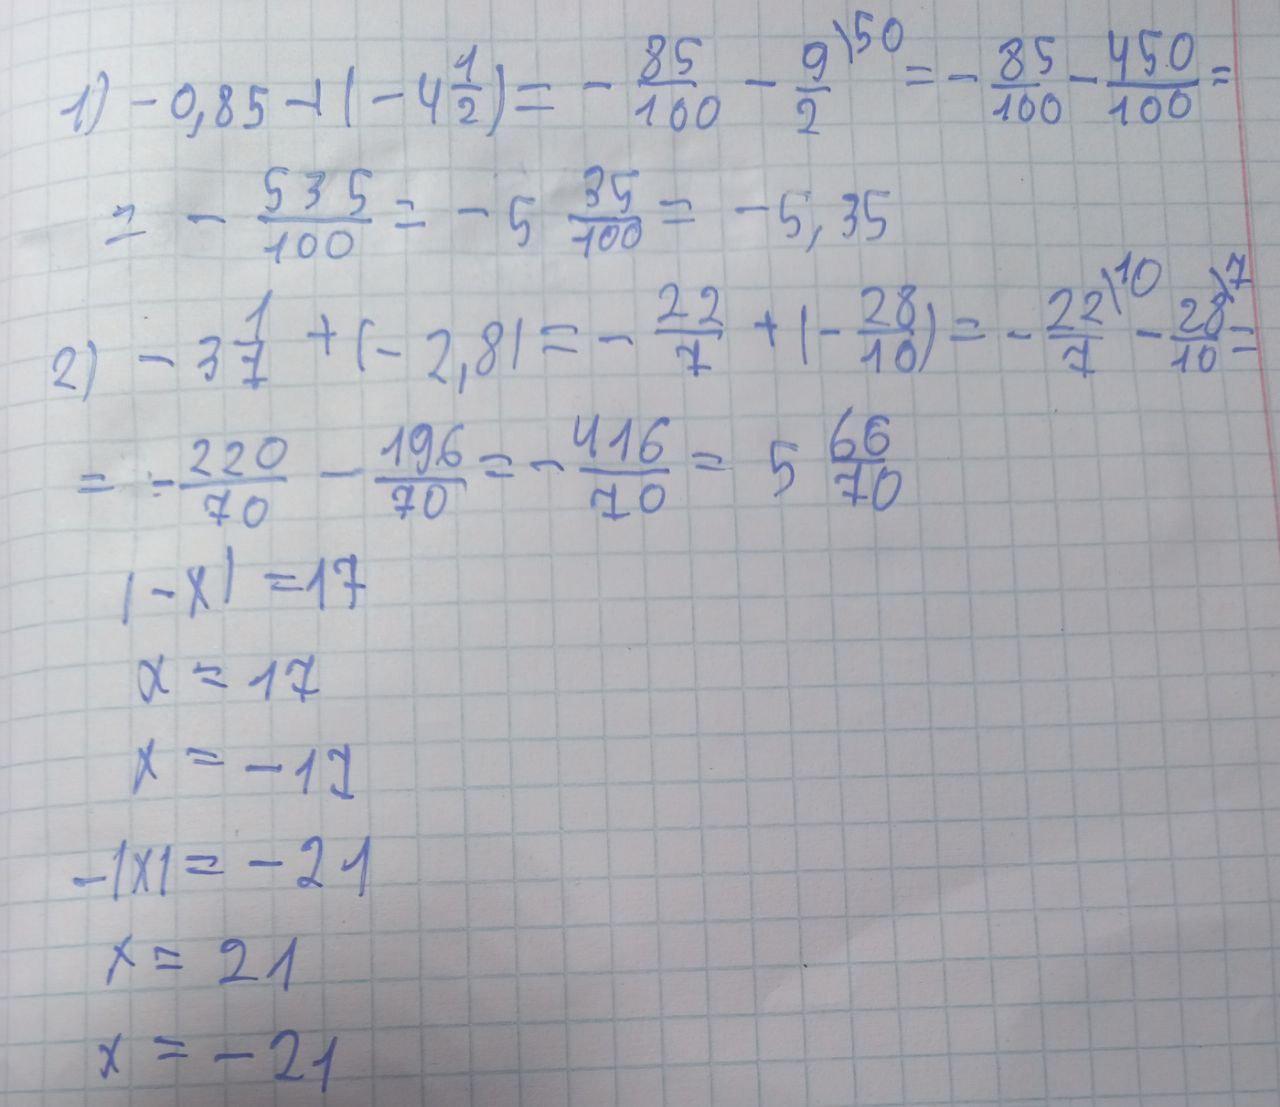 1) -0,85 + (-4 1/2) = - 85/100 - 9/2 \50 = - 85/100 - 450/100 =
= - 535/100 = -5 35/100 = -5,35
2) -3 1/7 + (-2,8) = - 22/7 + (- 28/10) = - 22/7 \10 - 28/10 \7 =
= - 220/70 - 196/70 = - 416/70 = 5 66/70
|-x| = 17
x = 17
x = -17
-|x| = -21
x = 21
x = -21